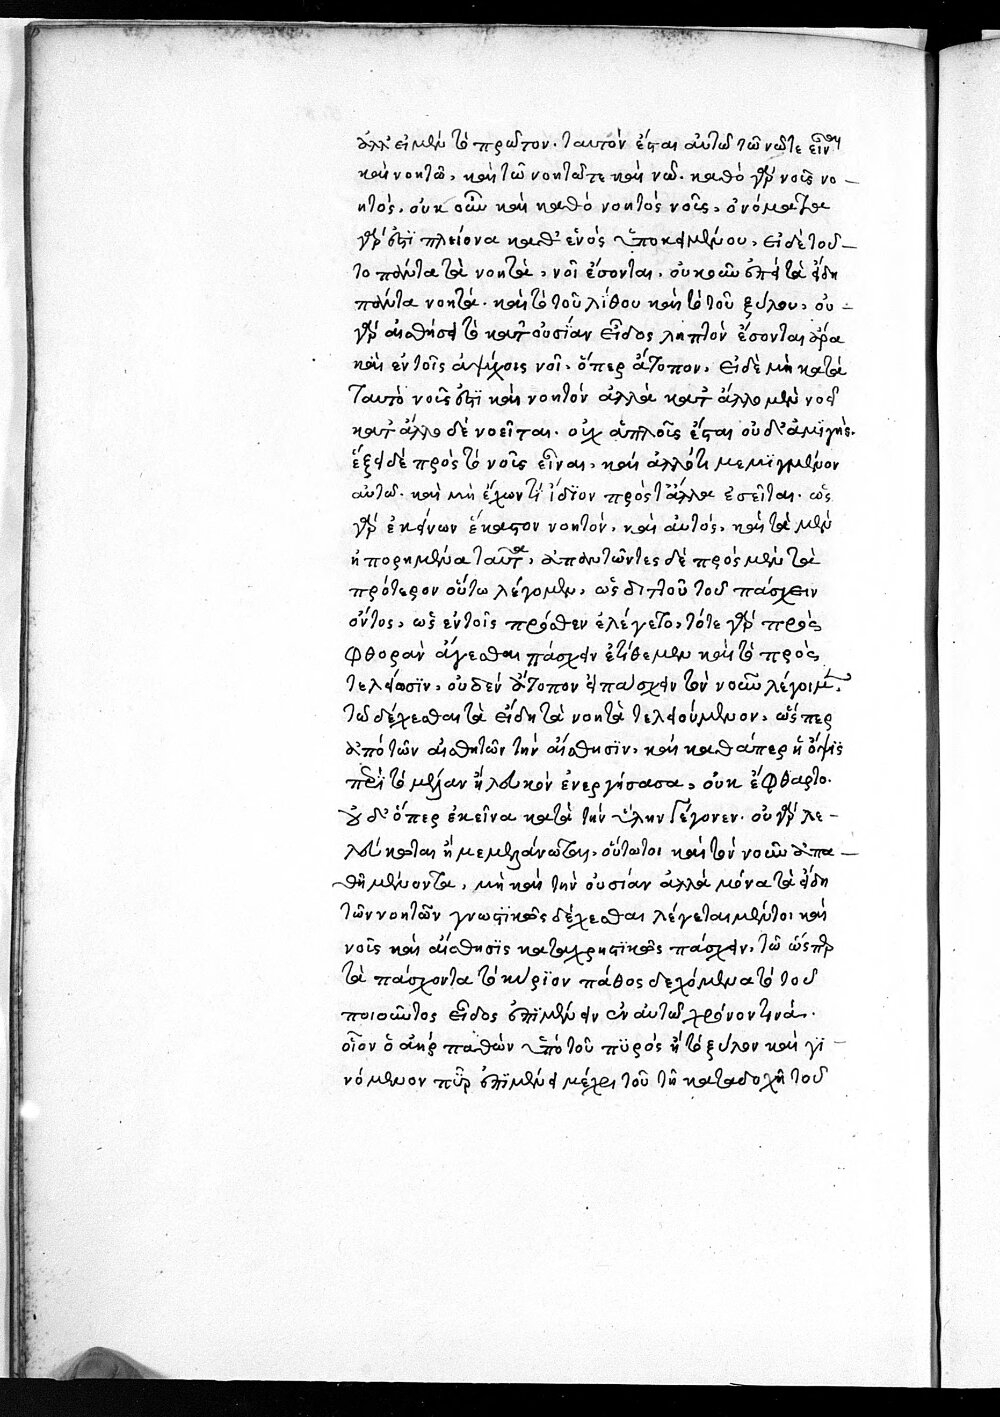 ἀλλ' εἰ μὲν τὸ πρῶτον. ταυτὸν ἔσται αὐτῶ τῶ νῶ τε εἶναι
καὶ νοητῶ, καὶ τῶ νοητῶ τε καὶ νῶ. καθὸ γὰρ νοῦς νο-
ητός, οὐκοῦν καὶ καθὸ νοητὸς νοῦς, ὀνόματα
γὰρ ἐστὶ πλείονα καθ' ἑνὸς ὑποκειμένου, εἰ δὲ τοῦ-
το πάντα τὰ νοητὰ, νοῖ ἔσονται. οὐκοῦν ἐπεὶ τὰ εἴδη
πάντα νοητὰ. καὶ τὸ τοῦ λίθου καὶ τὸ τοῦ ξύλου, οὐ
γὰρ αἰσθήσει τὸ κατ' οὐσίαν εἶδος ληπτὸν ἔσονται ἄρα
καὶ ἐν τοῖς ἀψύχοις νοῖ, ὅπερ ἄτοπον, εἰ δὲ μὴ κατὰ
ταυτὸ νοῦς ἐστὶ καὶ νοητὸν ἀλλὰ κατ' ἄλλο μὲν νοεῖ
κατ' ἄλλο δὲ νοεῖται. οὐχ ἁπλοῦς ἔσται οὐδ' ἀμιγής.
ἕξει δὲ πρὸς τὸ νοῦς εἶναι, καὶ ἄλλό τι μεμιγμένον
αὐτῶ. καὶ μὴ ἔχων τί ἴδιον πρὸς τἄλλα ἐσεῖται. ὡς
γὰρ ἐκείνων ἕκαστον νοητὸν, καὶ αὐτός, καὶ τὰ μὲν
ἠπορημένα ταῦτα, ἀπαντῶντες δὲ πρὸς μὲν τὰ
πρότερον οὕτω λέγομεν, ὡς διττοῦ τοῦ πάσχειν
ὄντος, ὡς ἐν τοῖς πρόσθεν ἐλέγετο, τότε γὰρ πρὸς
φθορὰν ἄγεσθαι πάσχειν ἐτίθεμεν καὶ τὸ πρὸς
τελείωσιν, οὐδὲν ἄτοπον εἰ πάσχειν τὸν νοῦν λέγοιμεν,
τῶ δέχεσθαι τὰ εἴδη τὰ νοητὰ τελειούμενον, ὥσπερ
ἀπὸ τῶν αἰσθητῶν τὴν αἴσθησιν, καὶ καθάπερ ἡ ὄψις
περὶ τὸ μέλαν ἢ λευκὸν ἐνεργήσασα, οὐκ ἔφθαρτο.
οὐδ' ὅπερ ἐκεῖνα κατὰ τὴν ὕλην γέγονεν. οὐ γὰρ λε-
λεύκασται ἢ μεμελάνωται, οὕτω τοι καὶ τὸν νοῦν ἀπα-
θῆ μένοντα, μὴ καὶ τὴν οὐσίαν ἀλλὰ μόνα τὰ εἴδη
τῶν νοητῶν γνωστικῶς δέχεσθαι λέγεται μέντοι καὶ
νοῦς καὶ αἴσθησις καταχρηστικῶς πάσχειν, τῶ ὥσπερ
τὰ πάσχοντα τὸ κύριον πάθος δεχόμενα τὸ τοῦ
ποιοῦντος εἶδος ἐπιμένειν ἐν αὐτῶ χρόνον τινά.
οἷον ὁ ἀὴρ παθὼν ὑπὸ τοῦ πυρὸς ἢ τὸ ξύλον καὶ γι-
νόμενον πῦρ ἐπιμένει μέχρι τοῦ τῆ καταδοχῆ τοῦ